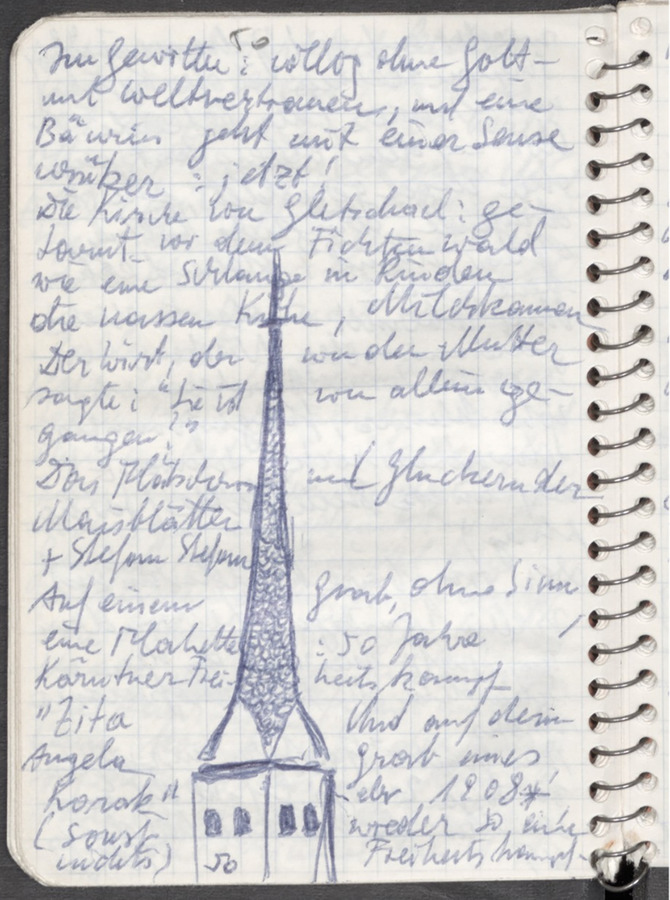 50
Im Gewitter: völlig ohne Gott-
und Weltvertrauen, und eine
Bäuerin geht mit einer Sense
vorüber: jetzt!
Die Kirche von Gletschach: ge-
tarnt vor dem Fichtenwald
wie eine Schlange in Rinden
die nassen Kühe, Milchkannen
Der Wirt, der von der Mutter
sagte: "Sie ist von allein ge-
gangen?"
Das Plätschern und Gluckern der
Maisblätter
+ Stefan Stefan
Auf einem Grab, ohne Sinn,
eine Plakette: 50 Jahre
Kärntner Freiheitskampf
"Zita Und auf dem
Angela Grab eines
Korak" der 1908*!
(sonst wieder so eine
nichts) Freiheitskampf-
50